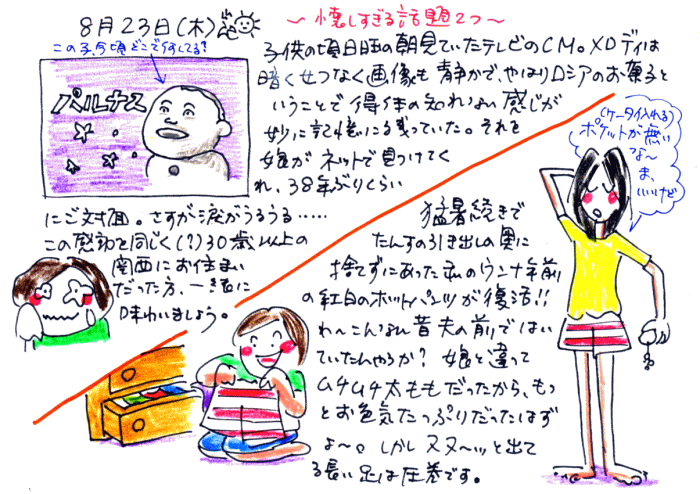 8月23日(木)
〜懐しすぎる話題2つ〜
この子、今頃どこで何してる?
パルナス
子供の頃日曜の朝見ていたテレビのCM。メロディは
暗くせつなく画像も静かで、やはりロシアのお菓子と
いうことで得体の知れない感じが
妙に記憶に残っていた。それを
娘がネットで見つけてく
れ、38年ぶりくらい
にご対面。さすが涙がうるうる……
この感動を同じく(?)30歳以上の
関西にお住まい
だった方、一緒に
味わいましょう。
(ケータイ入れる)
ポケットが無い
な〜
ま、
いいけど
猛暑続きで
たんすの引き出しの奥に
捨てずにあった私のウン十年前
の紅白のホットパンツが復活!!
わ〜こんなん昔夫の前ではい
ていたんやろか?娘と違って
ムチムチ太ももだったから、もっ
とお色気たっぷりだったはず
よ〜。しかしスヌ〜ッと出て
る長い足は圧巻です。